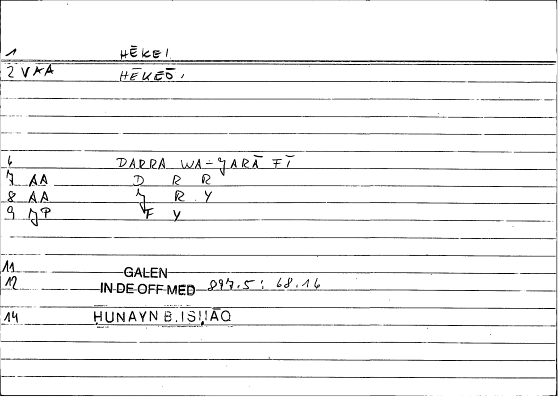 1 HĒKEI
2 VAA HĒKEŌ,
6 DARRA WA-ǦARĀ FĪ
7 AA D R R
8 AA Ǧ R Y
9 JP F Y
11 GALEN
12 IN DE OFF MED 897.5: 68.16
14 ḤUNAYN B.ISḤĀQ